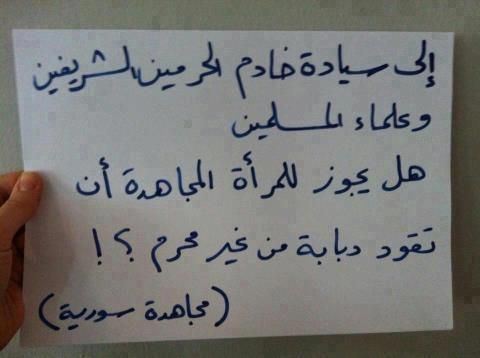 إلى سيادة خادم الحرمين الشريفين
وعلماء المسلمين
هل يجوز للمرأة المجاهدة أن
تقود دبابة من غير محرم ؟!
(مجاهدة سورية)